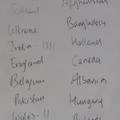 Scotland
Ukraine
India - IIII
England
Belgium
Pakistan
Wales - II
Afghanistan
Bangladesh
Holland
Canada
Albania
Hungary